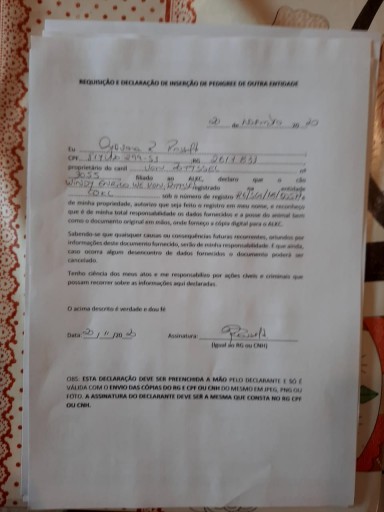 REQUISIÇÃO E DECLARAÇÃO DE INSERÇÃO DE PEDIGREE DE OUTRA ENTIDADE
20 de Novembro de 20
Eu
CPF RG
proprietário do canil nº
filiado ao ALKC, declaro que o cão
registrado na entidade
sob o número de registro
de minha propriedade, autorizo que seja feito o registro em meu nome, e reconheço
que é de minha total responsabilidade os dados fornecidos e a posse do animal bem
como o documento original em mãos, onde forneço a cópia digital para o ALKC.
Sabendo-se que quaisquer causas ou consequências futuras recorrentes, oriundos por
informações deste documento fornecido, serão de minha responsabilidade. E que ainda,
caso ocorra algum desencontro de dados fornecidos o documento poderá ser
cancelado.
Tenho ciência dos meus atos e me responsabilizo por ações cíveis e criminais que
possam recorrer sobre as informações aqui declaradas.
O acima descrito é verdade e dou fé.
Data 20/11/2020 Assinatura:
(Igual ao RG ou CNH)
OBS: ESTA DECLARAÇÃO DEVE SER PREENCHIDA A MÃO PELO DECLARANTE E SÓ É
VÁLIDA COM O ENVIO DAS CÓPIAS DO RG E CPF OU CNH DO MESMO EM JPEG, PNG OU
FOTO. A ASSINATURA DO DECLARANTE DEVE SER A MESMA QUE CONSTA NO RG CPF
OU CNH.